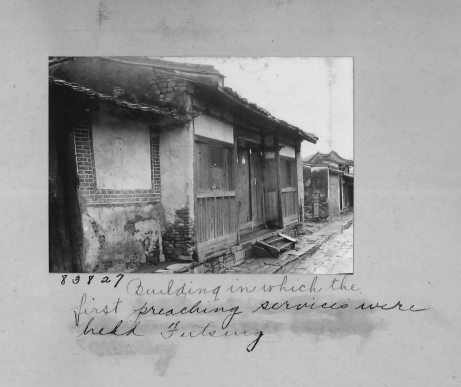 83827 Building in which the
first preaching services were
held Futsing